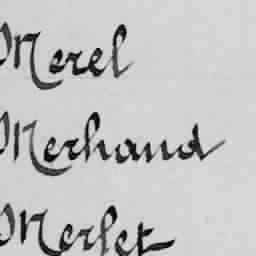 Merel
Merhand
Merlet